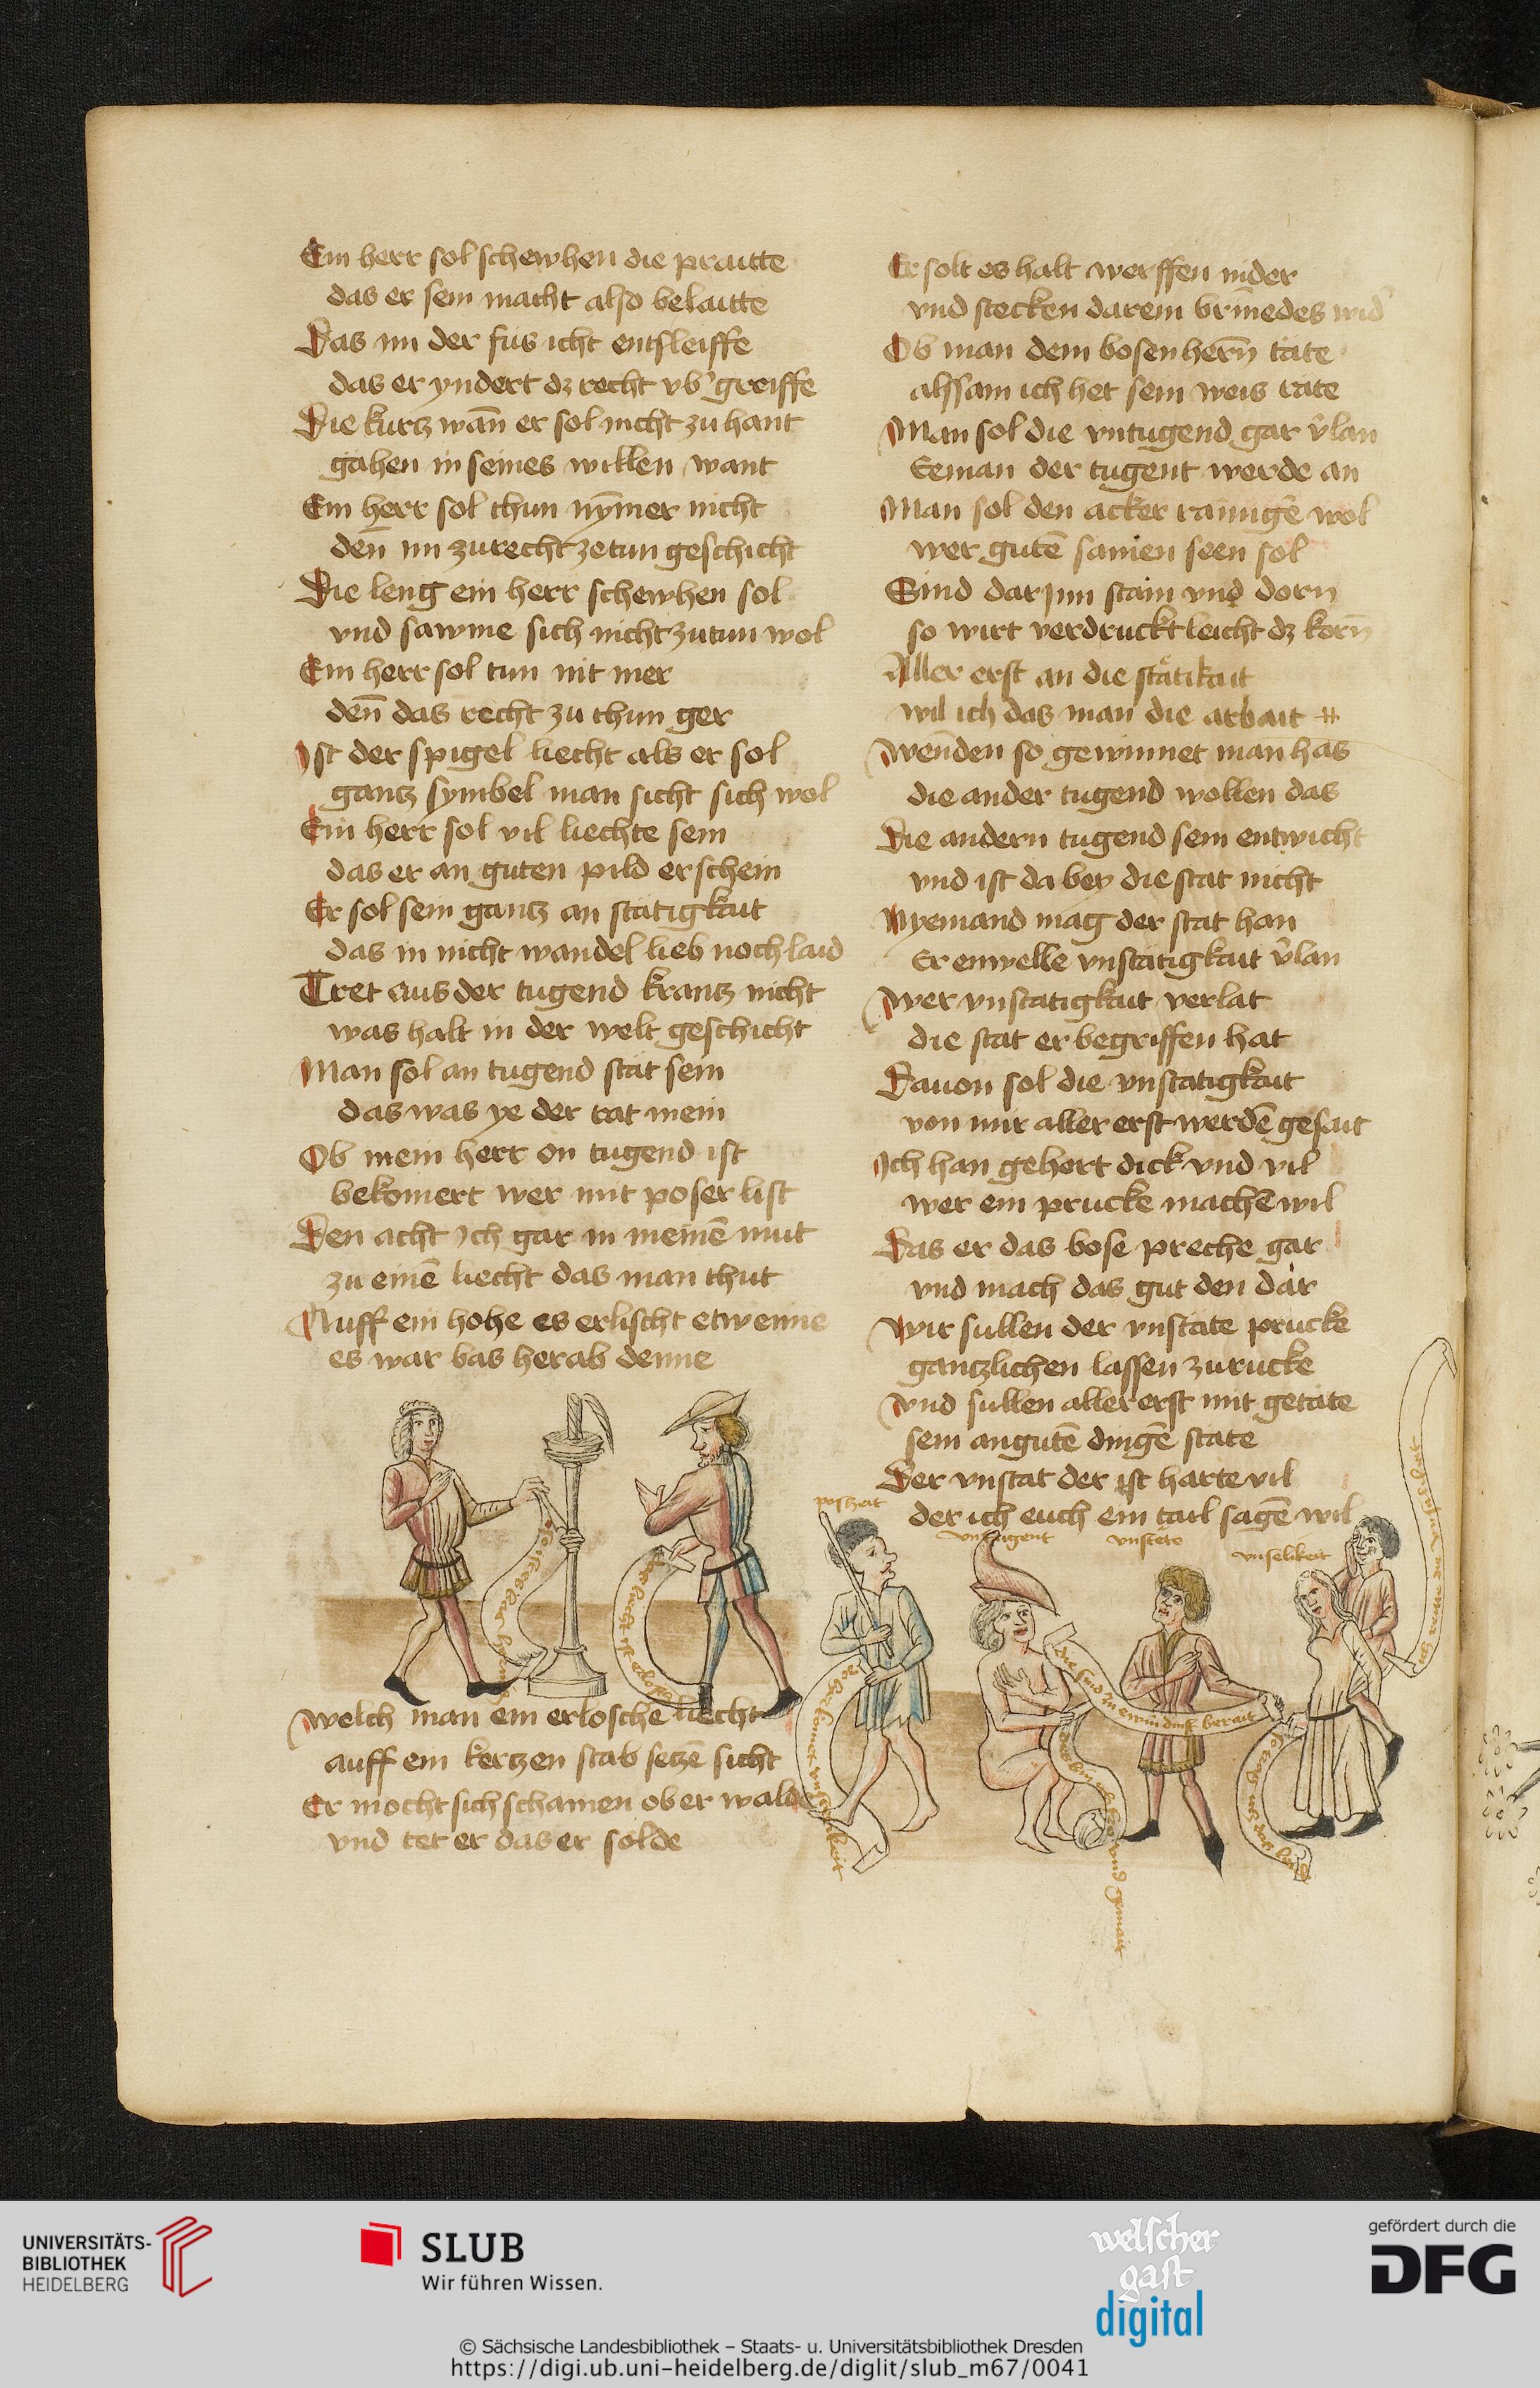 Ein herr sol schewhen die praitte
das er sein macht also belaitte
Das im der fus icht entsleiffe
das er yndert dz recht vb' greiffe
Die kurtz wan̄ er sol nicht zu hant
gahen in seines willen want
Ein herr sol thun nȳmer nicht
den̄ im zurecht zetun geschicht
Die leng ein herr schewhen sol
vnd sawme sich nicht zutun wol
Ein herr sol tun nit mer
den̄ das recht zu thun ger
Ist der spigel liecht als er sol
gantz symbel man sicht sich wol
Ein herr sol vil liechte sein
das er an guten pild erschein
Er sol sein gantz an statigkait
das in nicht wandel lieb noch laid
Tret aus der tugend krantz nicht
was halt in der welt geschicht
Man sol an tugend stät sein
das was ye der rat mein
Ob mein herr on tugend ist
bekomert wer mit poser list
Den acht Ich gar in meinē mut
zu einē liecht das man thut
Auff ein hohe es erlischt etwenne
es war bas herab denne
welch man ein erlosche liecht
auff ein kertzen stab setzē sicht
Er mocht sich schamen ob er wald
vnd tet er das er solde
Er solt es halt werffen nider
vnd stecken darein brinnēdes wid'
Ob man dem bosen hern̄ täte
alssam ich het sein weis räte
Man sol die vntugend gar v̄lan
Ee man der tugent werde an
Man sol den acker rainigē wol
wer gutē samen seen sol
Sind darJnn stain vnd dorn
so wirt verdruckt leicht dz korn̄
Aller erst an die stätikait
wil ich das man die arbait
wenden so gewinnet man has
die ander tugend wollen das
Die andern tugend sein entwicht
vnd ist da bey die stat nicht
Nyemand mag der stat han
Er enwelle vnstätigkait v̄lan
wer vnstatigkait verlat
die stat er begriffen hat
Dauon sol die vnstatigkait
von mir aller erst werdē gesait
Ich han gehort dick vnd vil
wer ein prucke machē wil
Das er das bose preche gar
vnd mach das gut den dar
wir sullen der vnstäte prucke
gantzlichen lassen zurucke
vnd sullen allererst mit getäte
sein an gutē dingē state
Der vnstat der ist harte vil
der ich euch ein tail sagē wil
posheit
vntugent
vnstete
vnselikeit
die sind zu ewrm dinst berait
UNIVERSITÄTS-
BIBLIOTHEK
HEIDELBERG
SLUB
Wir führen Wissen.
welscher
gast
digital
gefördert durch die
DFG
© Sächsische Landesbibliothek – Staats- u. Universitätsbibliothek Dresden
https://digi.ub.uni-heidelberg.de/diglit/slub_m67/0041